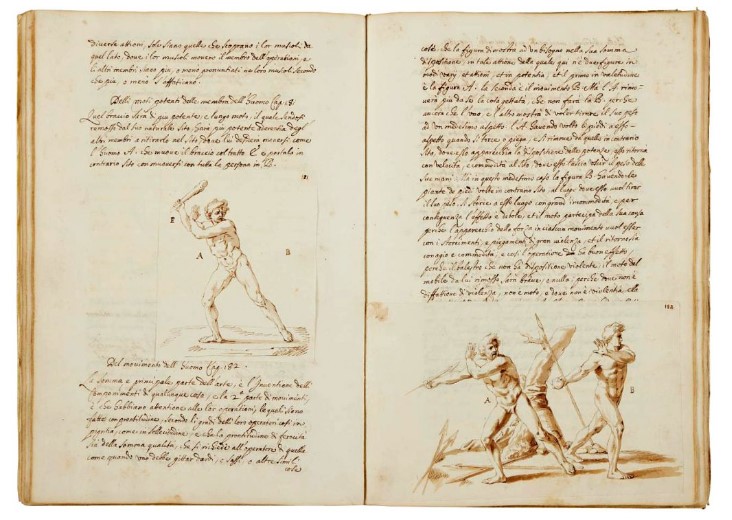 diverse attioni, solo siano quelle che scoprano i lor musoli da
quel lato, doue i lor musoli mouono il membro dell'operationi, e
li altri membri sieno piu, o meno pronuntiati ne loro musoli, secondo
che piu, o meno s'affatticano.
Delli moti potenti delle membra dell'Huomo Cap. 181.
Quel braccio sera di piu potente, e lungo moto, il quale sendosi
remosso dal suo naturale sito, hara piu potente degl'
altri membri a ritirarlo nel sito doue lui desidera mouersi, come
l'Huomo A. che muoue il braccio col tratto E. e portalo in
contrario sito con mouersi con tutta la persona in B.
181
E
A
B
Del mouimento dell'Huomo Cap. 182.
La somma e principale parte dell'arte, è l'Inuentione delli
componimenti di qualunque cosa, e la 2ª parte di mouimenti,
è che habbiano attentione alle lor operationi, le quali siano
fatte con prontitudine, secondo li gradi delli loro operatori così in
pigritia, come in sollecitudine, e che la prontitudine di ferocita
sia della somma qualita, che si richiede all'operatore di quella
come quando uno debba gittar dardi, o sassi, o altre simili
cose
cose, che la figura dimostri ad un bisogno nella sua somma
dispositione, in tale attione, della quale qui n'è due figure, in
modi uary attioni, et in potentia, et il primo in ualetudine
è la figura A. la seconda è il mouimento B. Ma l'A. rimo-
uerà piu da se la cosa gettata, che non farà la B. perche
ancora che l'uno e l'altro mostri di uoler tirare il suo peso
ad un medesimo aspetto, l'A. hauendo uolto li piedi a esso
aspetto quando si torce, o piega, e si rimoue da quello in contrario
sito, doue esso apparecchia la dispositione della potenza, esso ritorna
con uelocità, e commodità al sito doue esso lascia uscir il peso delle
sue mani. Ma in questo medesimo caso la figura B. hauendo le
piante de piedi uolte in contrario sito, al luogo doue esso uuol tirar
il suo peso, si storce a esso luogo con grand'incommodità, e per
conseguenza l'effetto è debole, et il moto partecipa della sua causa
perche l'apparecchio della forza in ciascun mouimento uuol esser
con storcimenti, e piegamenti di gran uiolenza, et il ritorno sia
con agio e commodità, e così l'operatione ha buon effetto,
perche il balestro che non ha dispositione uiolente, il moto del
mobile da lui rimosso, sarà breue, o nullo, perche doue non è
disfattione di uiolenza, non è moto, e doue non è uiolentia, ella
182
A
B